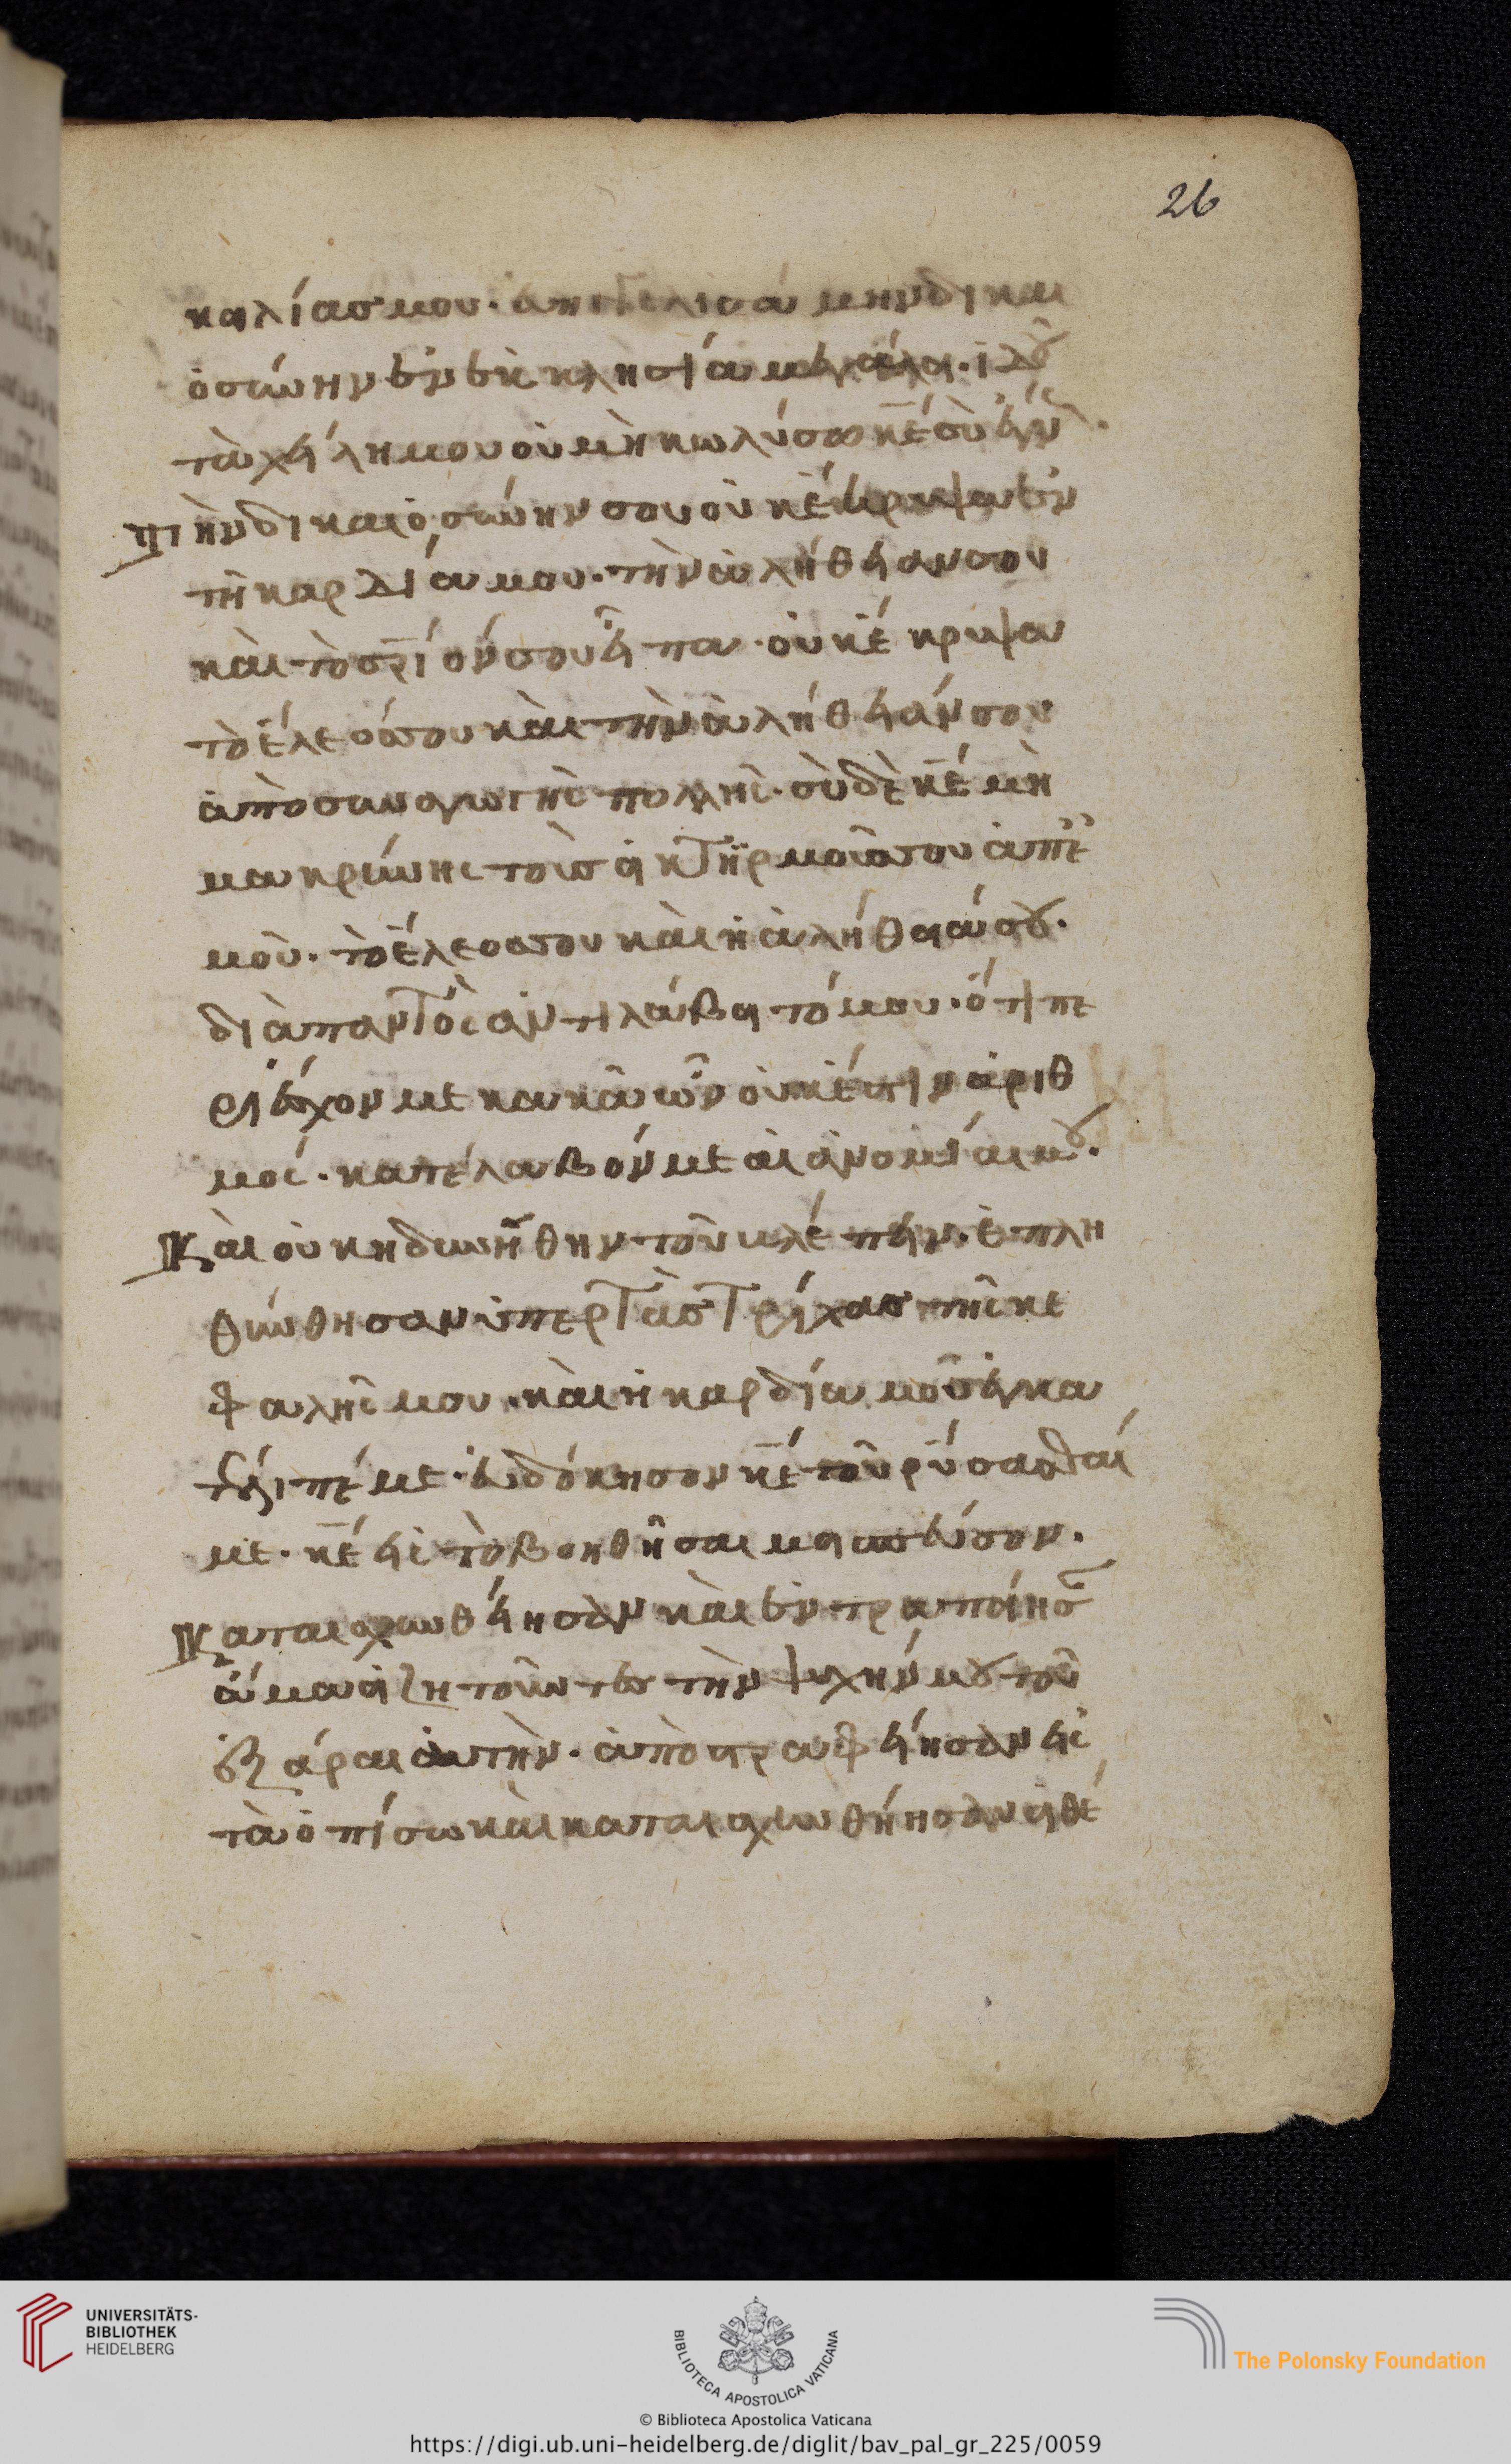 26
κοιλίας μου. εὐηγγελισάμην δικαι
οσύνην ἐν ἐκκλησία μεγάλη. ἰδοὺ
τὰ χείλη μου οὐ μὴ κωλύσω κ̅ε σὺ ἔγν
τὴν δικαιοσύνην σου οὐκ ἔκρυψα ἐν
τῆ καρδία μου. τὴν ἀλήθειαν σου
καὶ τὸ σ̅ρ̅ιόν σου εἶπα. οὐκ ἔκρυψα
τὸ ἔλεός σου καὶ τὴν ἀλήθειάν σου
ἀπὸ συναγωγῆς πολλῆς. σὺ δὲ κ̅ε μὴ
μακρύνης τοὺς οἰκτιρμούς σου ἀπ
μοῦ. τὸ ἔλεός σου καὶ ἡ ἀλήθειά σου.
διὰ παντὸς ἀντιλάβοιτό μου. ὅτι πε
ριέσχον με κακὰ ὧν οὐκ ἔστιν ἀριθ
μός. κατέλαβόν με αἱ ἀνομίαι μου.
Καὶ οὐκ ηδυνήθην τοῦ βλέπειν. ἐπλη
θύνθησαν ὑπὲρ τὰς τρίχας τῆς κε
φαλῆς μου. καὶ ἡ καρδία μου ἐγκα
τέλιπέ με. εὐδόκησον κ̅ε τοῦ ρύσασθαί
με. κ̅ε εἰς τὸ βοηθῆσαι μοι σπεύσον.
Καταισχυνθείησαν καὶ ἐντραπείησ
ἅμα οἱ ζητοῦντες τὴν ψυχήν μου τοῦ
ἐξάραι αὐτὴν. ἀποστραφείησαν εἰς
τὰ ὀπίσω καὶ καταισχυνθήησαν οἱ θέ
UNIVERSITÄTS-
BIBLIOTHEK
HEIDELBERG
BIBLIOTECA APOSTOLICA VATICANA
The Polonsky Foundation
© Biblioteca Apostolica Vaticana
https://digi.ub.uni-heidelberg.de/diglit/bav_pal_gr_225/0059